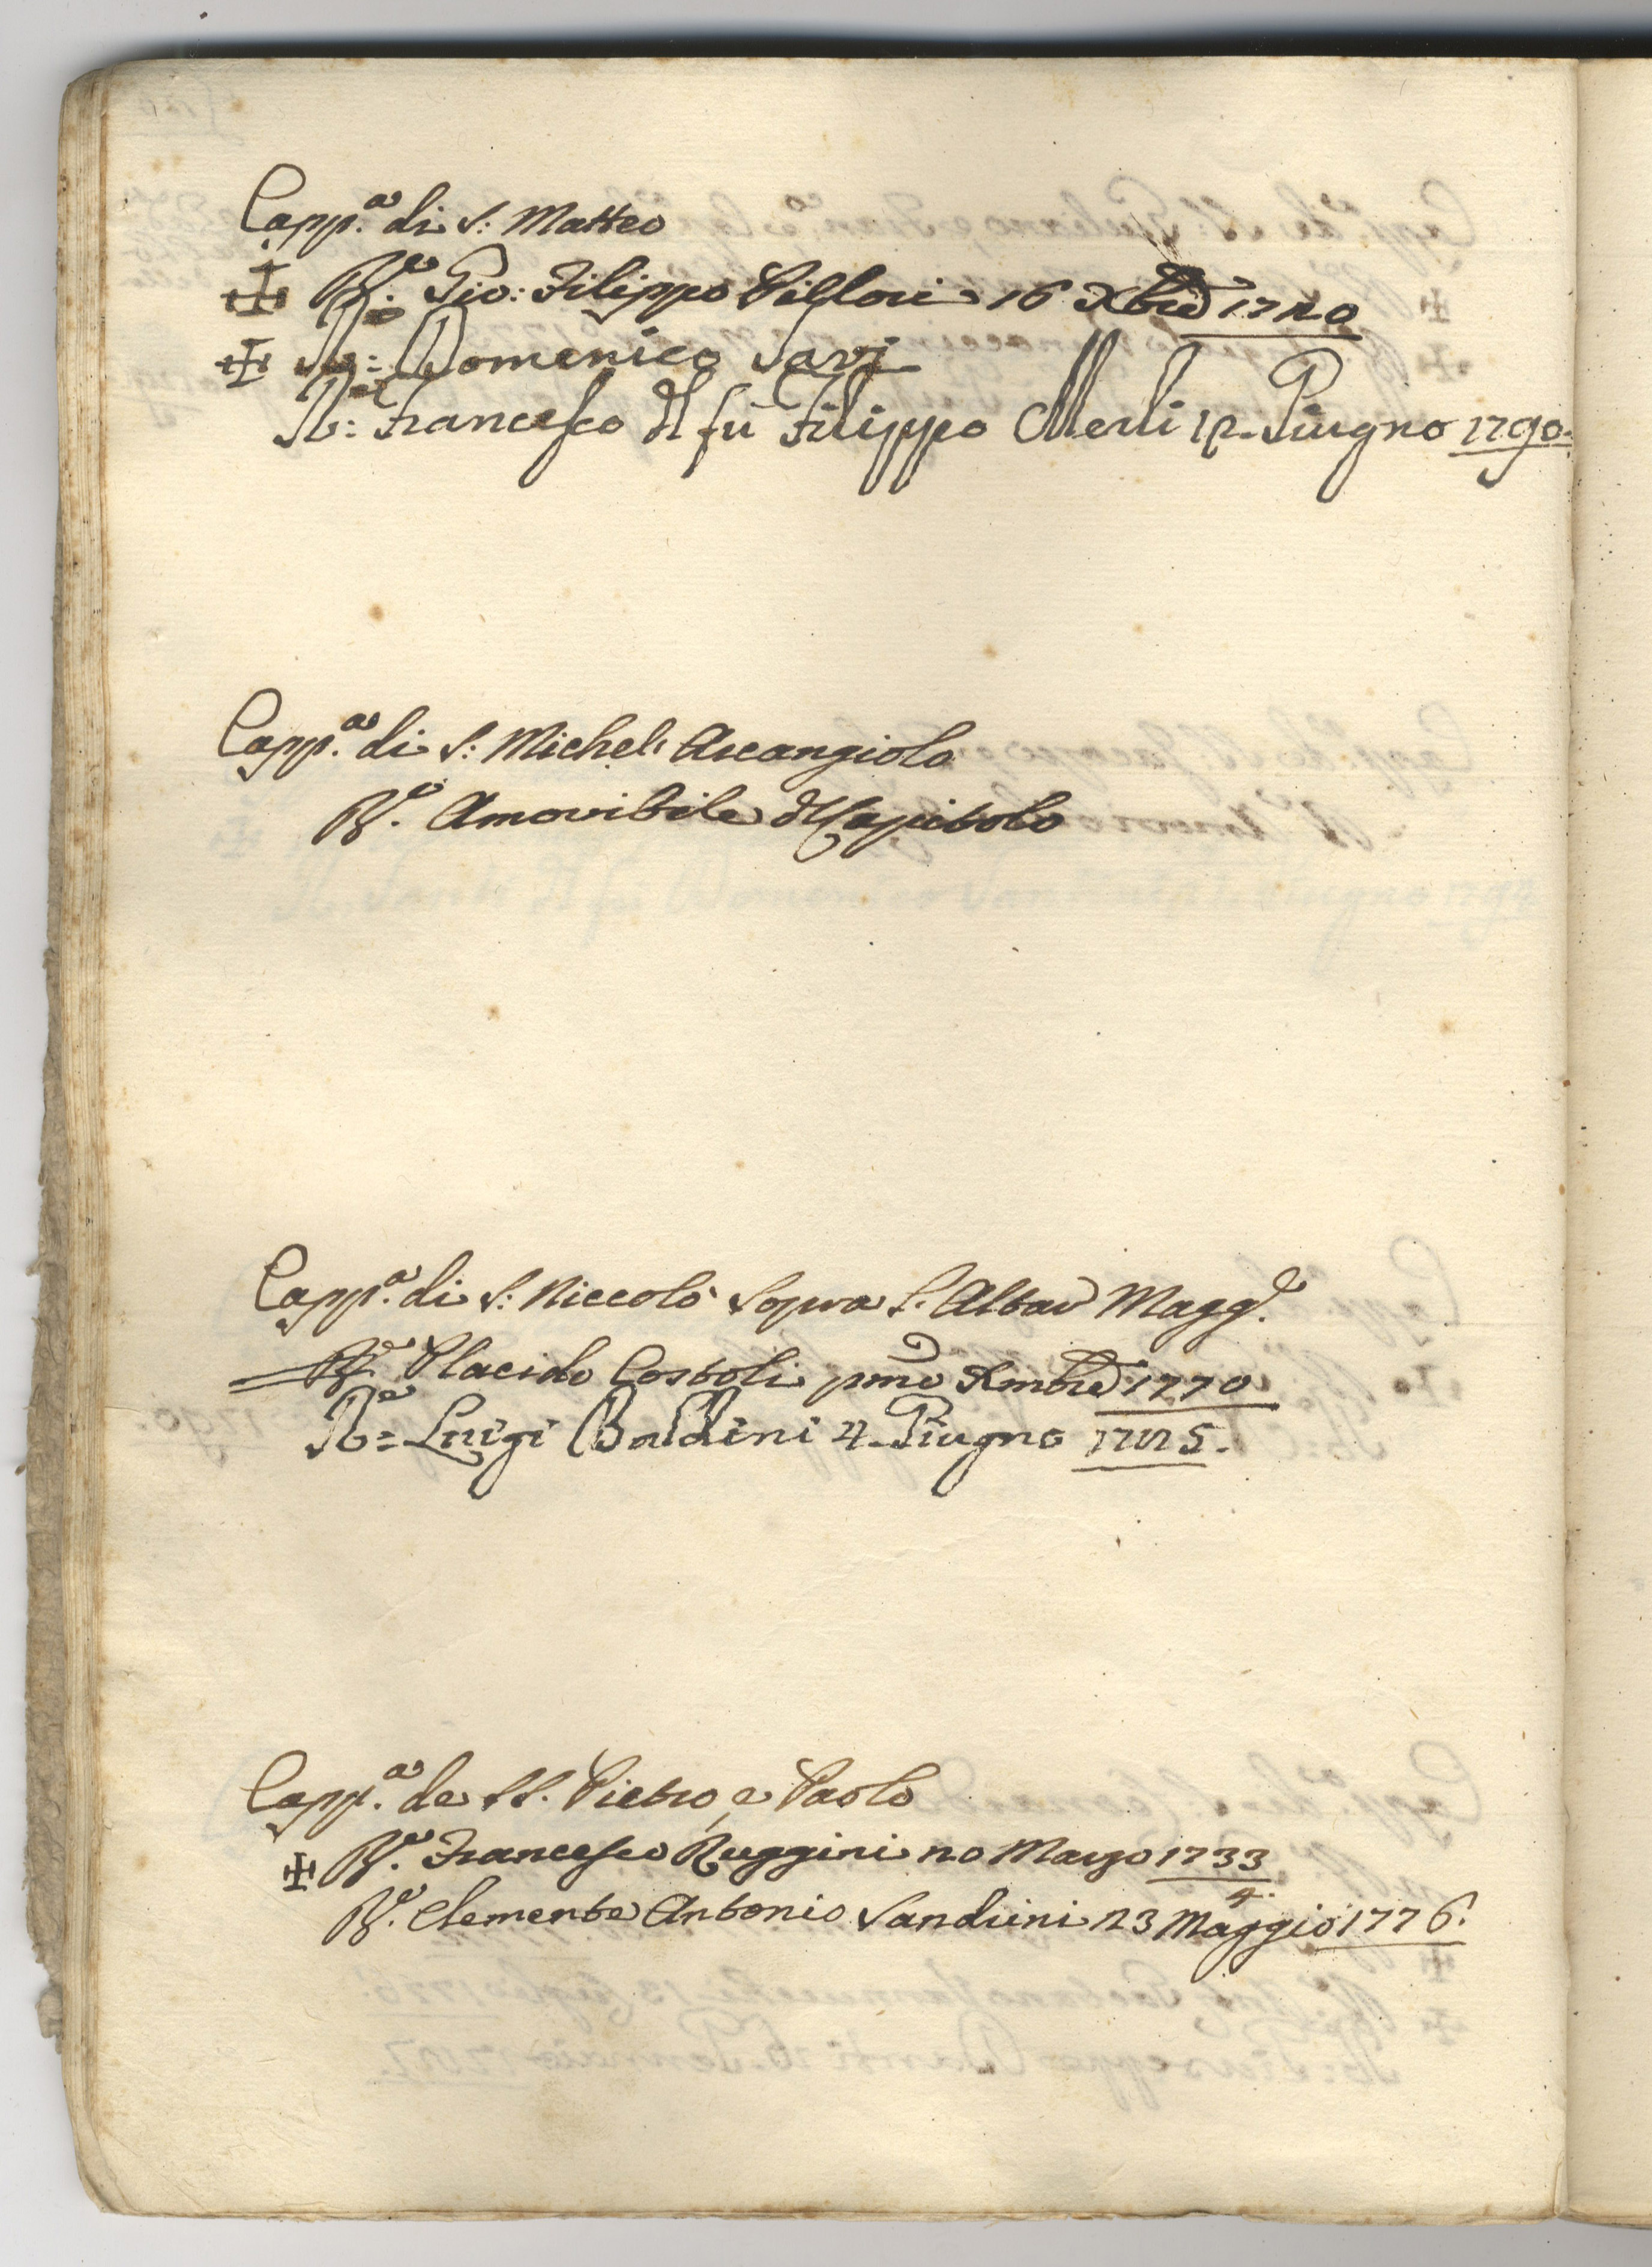 Capp.a di S: Matteo
✠ R.e Gio: Filippo Pillori 16 Xbre 1720
✠ R.e Domenico Savi
R.e Francesco del fù Filippo Merli 12. Giugno 1790.
Capp.a di S: Michel' Arcangiolo
R.e Amovibile del Capitolo
Capp.a di S: Niccolò Sopra l'Altar Magg.e
R.e Placido Costoli pmo Xmbre 1770
R.e Luigi Baldini 4. Giugno 1785.
Capp.a de SS. Pietro, e Paolo
✠ R.e Francesco Ruggini 20 Marzo 1733
4.
R.e Clemente Antonio Sandrini 23 Maggio 1776.